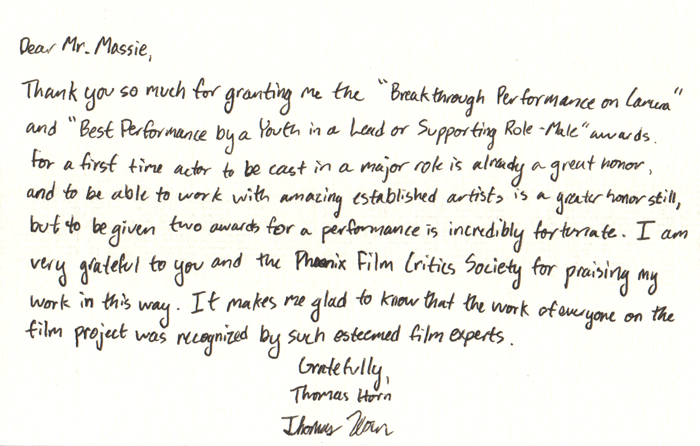 Dear Mr. Massie,
Thank you so much for granting me the "Breakthrough Performance on Camera"
and "Best Performance by a Youth in a Lead or Supporting Role - Male" awards.
For a first time actor to be cast in a major role is already a great honor,
and to be able to work with amazing established artists is a greater honor still,
but to be given two awards for a performance is incredibly fortunate. I am
very grateful to you and the Phoenix Film Critics Society for praising my
work in this way. It makes me glad to know that the work of everyone on the
film project was recognized by such esteemed film experts.
Gratefully,
Thomas Horn
Thomas Horn